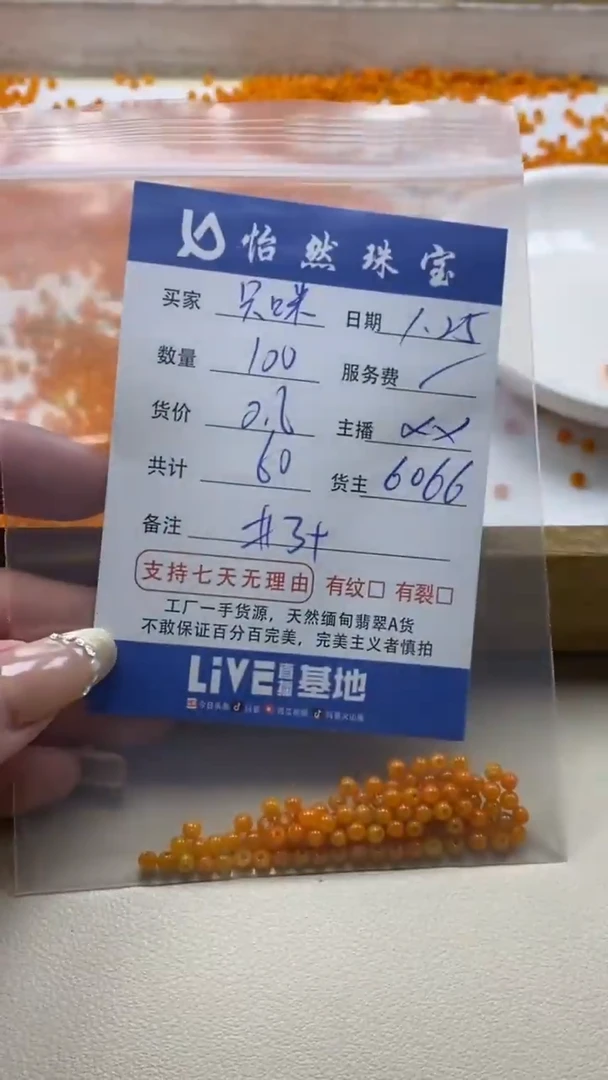 怡然珠宝
买家 日期 1.25
数量 100 服务费 /
货价 0.6 主播
共计 60 货主 6066
备注 #3+
支持七天无理由 有纹□ 有裂□
工厂一手货源，天然缅甸翡翠A货
不敢保证百分百完美，完美主义者慎拍
LiVE直播基地